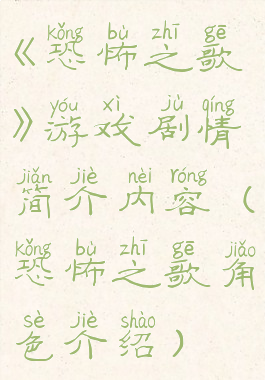 kǒng bù zhī gē
《恐怖之歌
yóu xì jù qíng
》游戏剧情
jiǎn jiè nèi róng
简介内容（
kǒng bù zhī gē jiǎo
恐怖之歌角
sè jiè shào
色介绍）